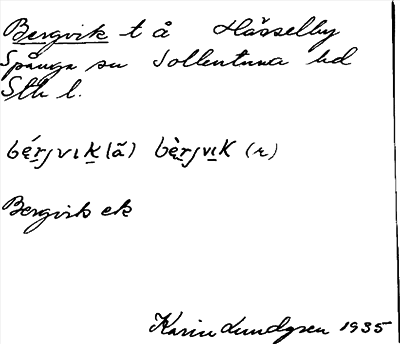 Bergvik t å Hässelby
Spånga sn Sollentuna hd
Sth l.
bę́rjvık (ä) bę̀rjvık (r)
Bergvik ek
Karin Lundgren 1935